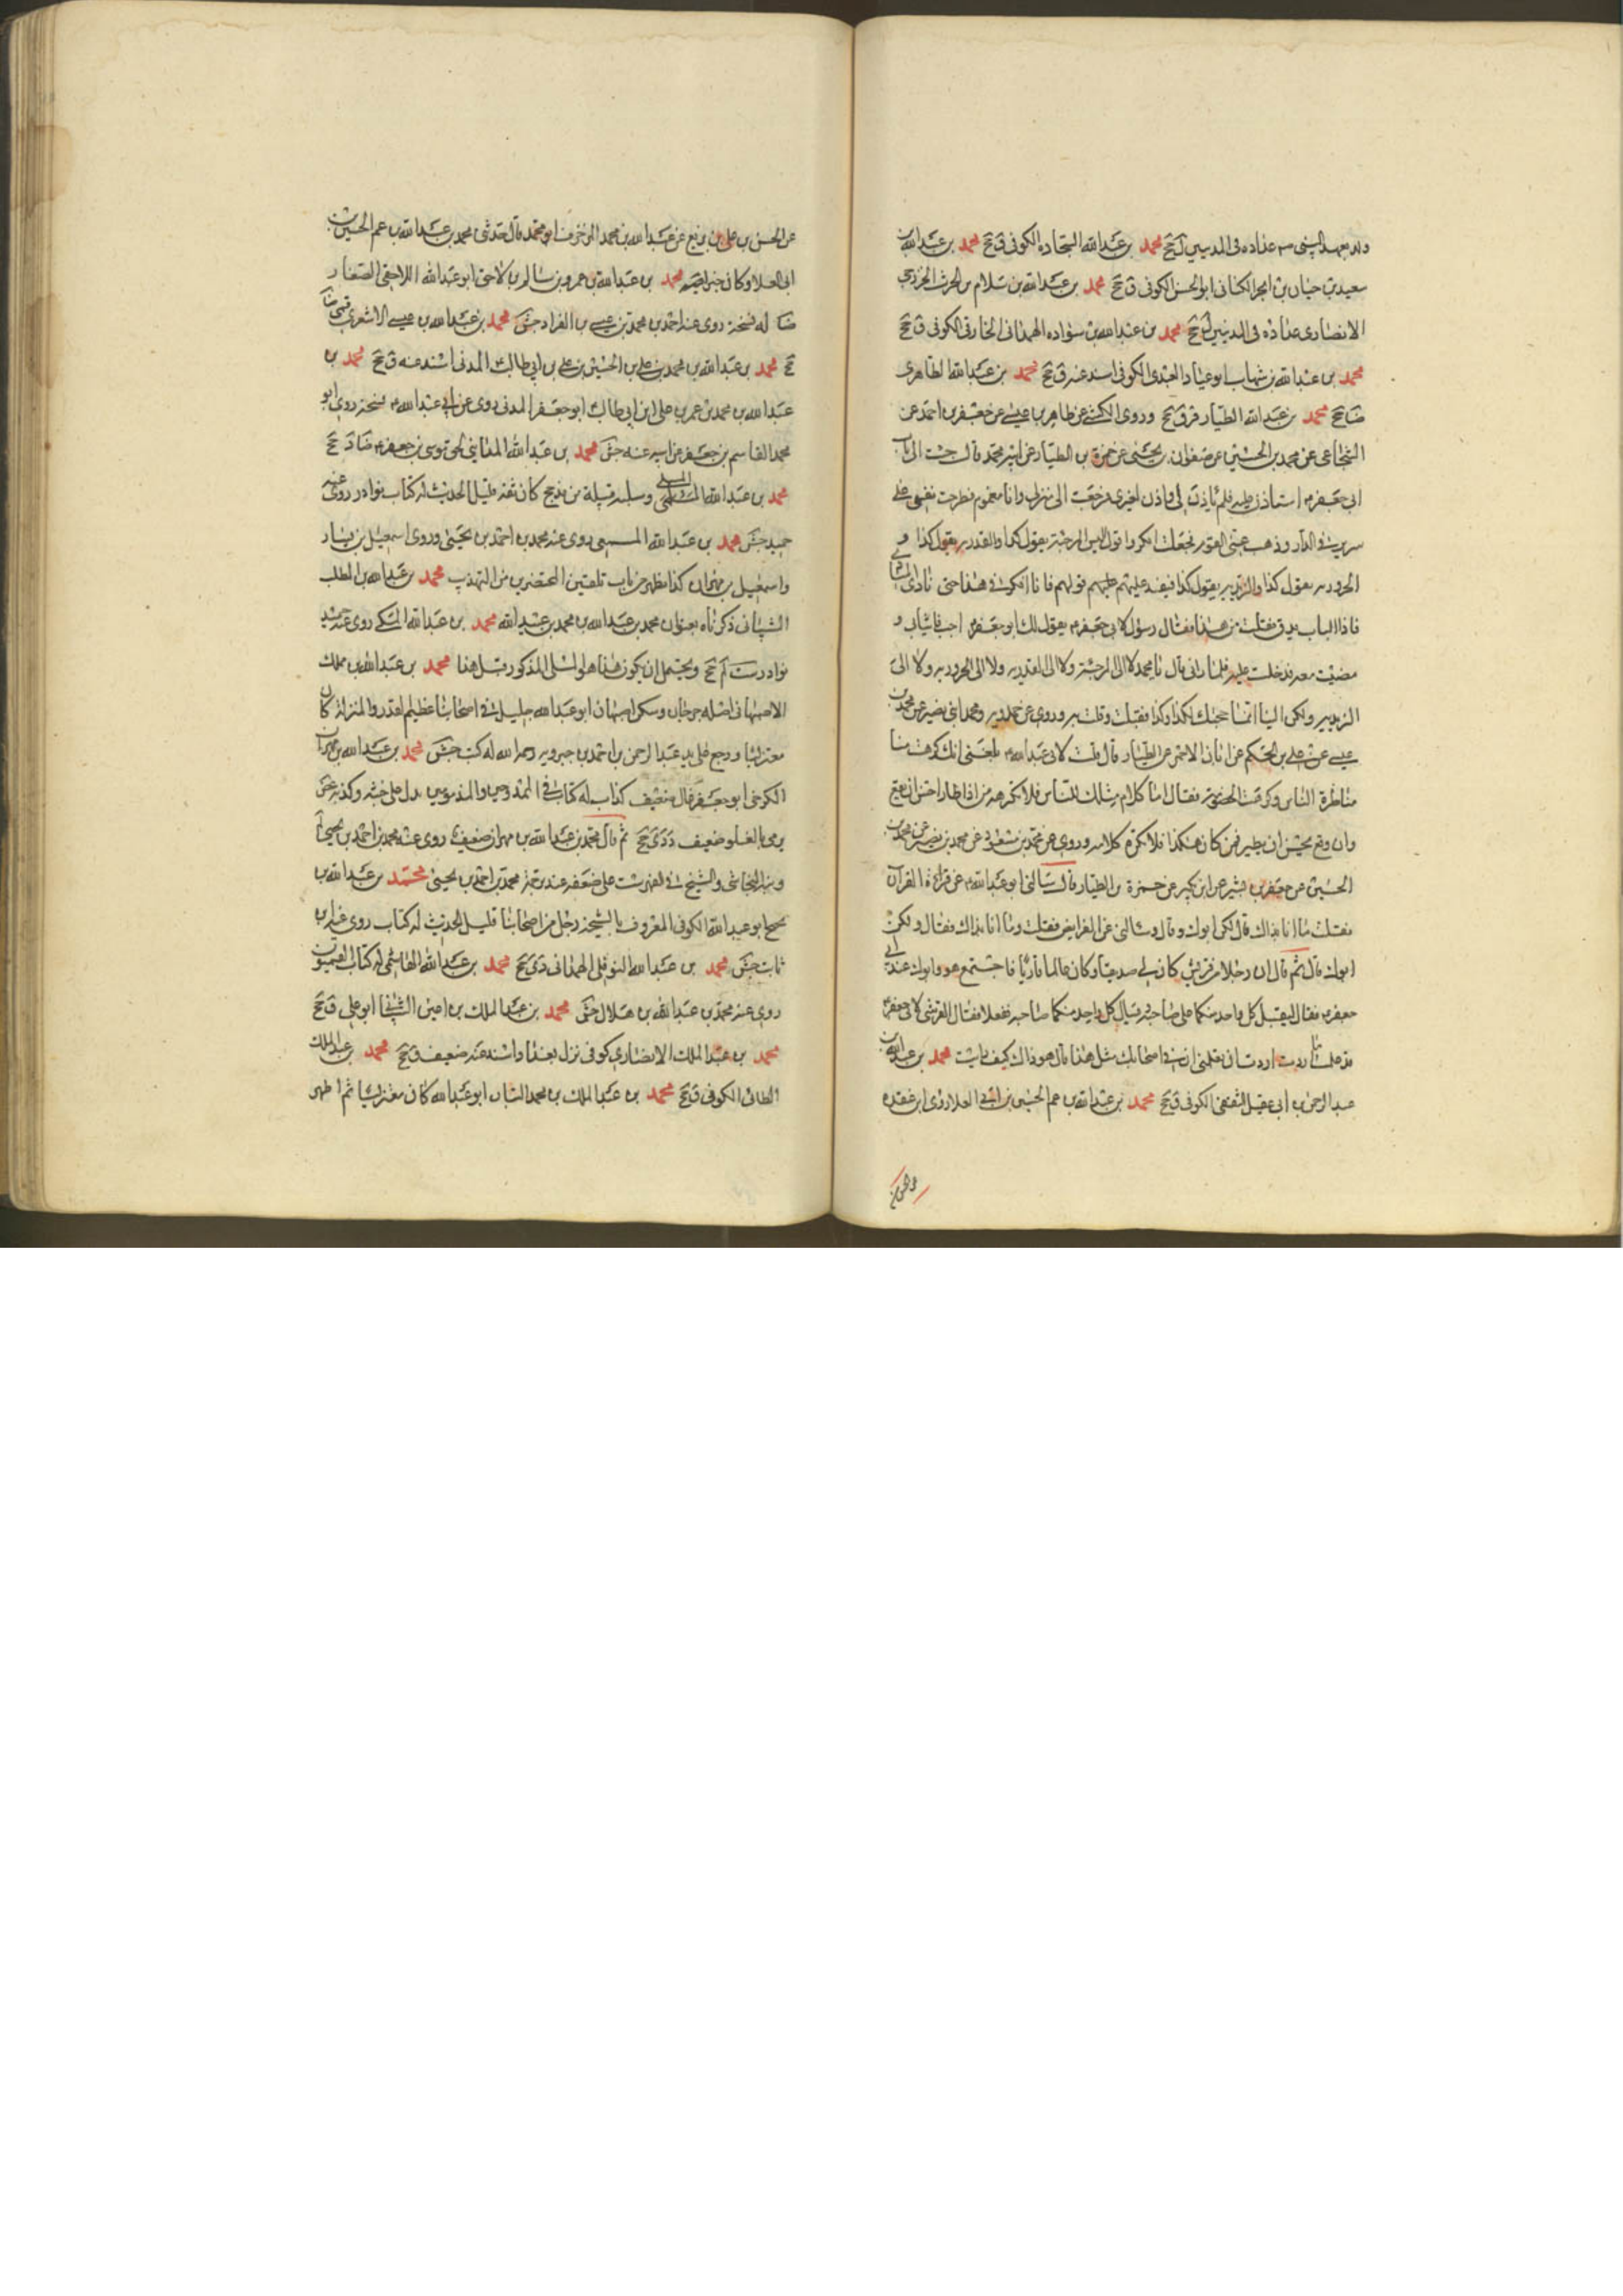 ولد بعهد النبى ص عداده فى المدنيين ل جخ محمد بن عبدالله البجاده الكوفى ق جخ محمد بن عبدالله بن
سعيد بن حيان بن ابجر الكنانى ابو الحسن الكوفى ق جخ محمد بن عبدالله بن سلام بن الحرث الخزرجى
الانصارى عداده فى المدنيين ل جخ محمد بن عبدالله بن سواده الهمدانى الخارفى الكوفى ق جخ
محمد بن عبدالله بن شهاب ابو عباد العبدى الكوفى اسند عنه ق جخ محمد بن عبدالله الطاهرى
ضا جخ محمد بن عبدالله الطيار قر ق جخ وروى الكشى عن طاهر بن عيسى عن جعفر بن احمد عن
الشجاعى عن محمد بن الحسين عن صفوان بن يحيى عن حمزة بن الطيار عن ابيه محمد قال جئت الى باب
ابى جعفر ع استاذن عليه فلم ياذن لى واذن لغيرى فرجعت الى منزلى وانا مغموم فطرحت نفسى على
سرير فى الدار وذهب عنى النوم فجعلت افكر واقول اليس المرجئة يقول كذا والقدريه يقول كذا و
الحروريه يقول كذا والزيديه يقول كذا فيفند عليهم قولهم فانا افكر فى هذا حتى نادى المنادى
فاذا الباب يدق فقلت من هذا فقال رسول لابى جعفر ع يقول لك ابو جعفر ع اجب فاخذت ثيابى و
مضيت معه فدخلت عليه فلما رانى قال يا محمد لا الى المرجئة ولا الى القدريه ولا الى الحروريه ولا الى
الزيديه ولكن الينا انما حجبتك لكذا وكذا فقبلت وقلت به وروى عن حمدويه ومحمد ابنى نصير عن محمد بن
عيسى عن على بن الحكم عن ابان الاحمر عن الطيار قال قلت لابى عبدالله ع بلغنى انك كرهت منا
مناظرة الناس وكرهت الخصومة فقال اما كلام مثلك للناس فلا نكرهه من اذا طار احسن ان يقع
وان وقع يحسن ان يطير فمن كان هكذا فلا نكره كلامه وروى عن محمد بن مسعود عن محمد بن نصير عن محمد بن
الحسين عن جعفر بن بشير عن ابن بكير عن حمزة بن الطيار قال سالنى ابو عبدالله ع عن قراءة القرآن
فقلت ما انا بذاك قال لكن ابوك وقال وسالنى عن الفرايض فقلت وما انا بذاك فقال ولكن
ابوك قال ثم قال ان رجلا من قريش كان لى صديقا وكان عالما قاريا فاجتمع هو وابوك عند ابى
جعفر ع فقال ليقبل كل واحد منكما على صاحبه ويسال كل واحد منكما صاحبه ففعلا فقال القرشى لابى جعفر ع
قد علمت ما اردت اردت ان تعلمنى ان فى اصحابك مثل هذا قال هو ذاك كيف رايت محمد بن عبدالله بن
عبدالرحمن بن ابى عقيل الثقفى الكوفى ق جخ محمد بن عبدالله بن عم الحسين بن ابى العلا روى ابن عقده
عن الحسن
عن الحسن بن على بن بزيع عن عبدالله بن محمد المزخرف ابو محمد قال حدثنى محمد بن عبدالله بن عم الحسين بن
ابى العلا وكان خيرا محمد بن عبدالله بن عمرو بن سالم بن لاحق ابو عبدالله اللاحقى الصفار
ضا له نسخة روى عنه احمد بن محمد بن عيسى بن الفراد جش محمد بن عبدالله بن عيسى الاشعرى قمى ضا
جخ محمد بن عبدالله بن محمد بن على بن الحسين بن على بن ابى طالب المدنى اسند عنه ق جخ محمد بن
عبدالله بن محمد بن عمر بن على ابن ابى طالب ابو جعفر المدنى روى عن ابى عبدالله ع نسخة روى ابو
محمد القاسم بن جعفر عن ابيه عنه جش محمد بن عبدالله المداينى لحق موسى بن جعفر ع ضا د جخ
محمد بن عبدالله المسلى وسلية قبيلة من مذحج كان ثقة قليل الحديث له كتاب نوادر روى عنه
حميد جش محمد بن عبدالله المسمعى روى عنه محمد بن احمد بن يحيى وروى اسمعيل بن يسار
واسمعيل بن مهران كذا يظهر من باب تلقين المحتضرين من التهذيب محمد بن عبدالله بن المطلب
الشيبانى ذكرناه بعنوان محمد بن عبدالله بن محمد بن عبيدالله محمد بن عبدالله المكى روى عنه حميد
نوادر ست لم جخ ويحتمل ان يكون هذا هو المسلى المذكور قبل هذا محمد بن عبدالله بن مملك
الاصبهانى اصله جرجان وسكن اصبهان ابو عبدالله جليل فى اصحابنا عظيم القدر والمنزلة كان
معتزليا ورجع على يد عبدالرحمن بن احمد بن جبرويه رحمه الله له كتب جش محمد بن عبدالله بن مهران
الكرخى ابو جعفر غال ضعيف كذاب له كتاب فى الممدوحين والمذمومين يدل على خبثه وكذبه جش
يرمى بالغلو ضعيف د دى جخ ثم قال محمد بن عبدالله بن مهران ضعيف روى عنه محمد بن احمد بن يحيى لم
ونبه النجاشى والشيخ فى الفهرست على ضعفه عند ترجمة محمد بن احمد بن يحيى محمد بن عبدالله بن
نجيح ابو عبدالله الكوفى المعروف بالشيخة رجل من اصحابنا قليل الحديث له كتاب روى عنه ابن
ثابت جش محمد بن عبدالله النوفلى الهمدانى دى جخ محمد بن عبدالله الهاشمى له كتاب القميون
روى عنه محمد بن عبدالله بن هلال جش محمد بن عبدالملك بن اعين الشيبانى ابو على ق جخ
محمد بن عبدالملك الانصارى كوفى نزل بغداد اسند عنه ضعيف ق جخ محمد بن عبدالملك
الطائى الكوفى ق جخ محمد بن عبدالملك بن محمد التبان ابو عبدالله كان معتزليا ثم اظهر